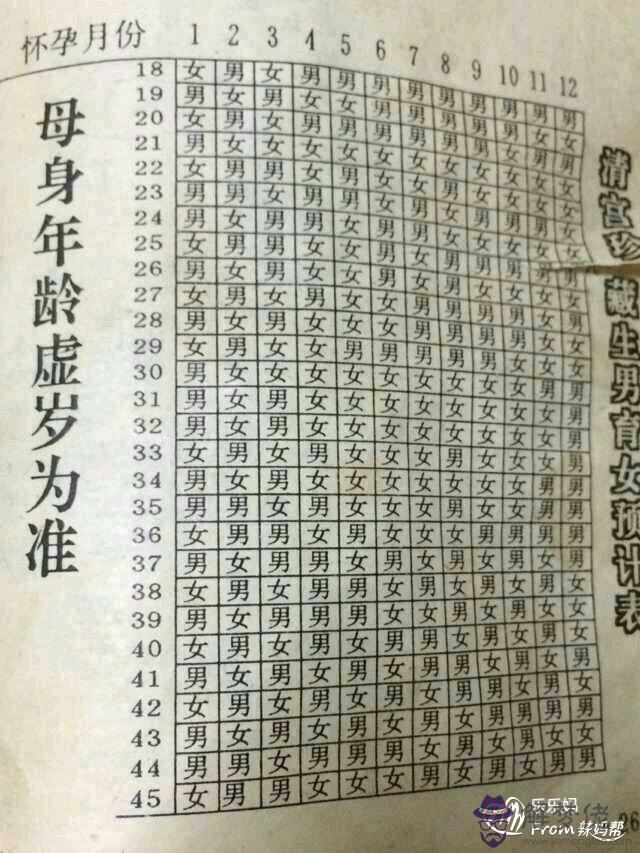 怀孕月份 1 2 3 4 5 6 7 8 9 10 11 12
18 女 男 女 男 男 男 男 男 男 男 男 男
19 男 女 男 女 女 男 男 男 男 男 女 女
20 女 男 女 男 男 男 男 男 男 女 男 男
21 男 女 女 女 女 女 女 女 女 女 女 女
22 女 男 男 女 男 女 女 男 女 女 女 女
23 男 男 女 男 男 女 男 女 男 男 男 女
24 男 女 男 男 女 男 男 女 女 女 女 女
25 女 男 男 女 女 男 女 男 男 男 男 男
26 男 女 男 女 女 男 女 男 女 女 女 女
27 女 男 女 男 女 女 男 男 男 男 女 男
28 男 女 男 女 女 女 男 男 男 男 女 女
29 女 男 女 女 男 男 男 男 男 女 女 女
30 男 女 女 女 女 女 女 女 女 女 男 男
31 男 女 男 女 女 女 女 女 女 女 女 男
32 男 女 男 女 女 女 女 女 女 女 女 男
33 女 男 女 男 女 女 女 男 女 女 女 男
34 男 女 男 女 女 女 女 女 女 女 男 男
35 男 男 女 男 女 女 女 男 女 女 男 男
36 女 男 男 女 男 女 女 女 男 男 男 男
37 男 女 男 男 女 男 女 男 女 男 女 男
38 女 男 女 男 男 女 男 女 男 女 男 女
39 男 女 男 男 男 女 女 男 女 男 女 女
40 女 男 女 男 女 男 男 女 男 女 男 女
41 男 女 男 女 男 女 男 男 女 男 女 男
42 女 男 女 男 女 男 女 男 男 女 男 女
43 男 女 男 女 男 女 男 女 男 男 男 男
44 男 男 女 男 男 男 女 男 女 男 女 女
45 女 男 男 女 女 女 男 女 男 女 男 男
母身年龄虚岁为准
清宫珍藏生男育女预计表
乐乐妈
From 辣妈帮
26